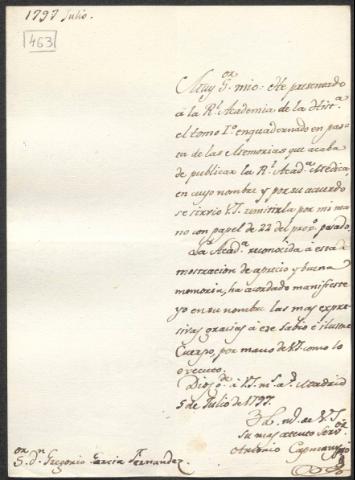 1797 Julio.
463
Muy Sor. mio: He presentado
à la Rl. Academia de la Hista.
el tomo Iº. enquadernado en pas-
ta de las Memorias que acaba
de publicar la Rl. Acada. Medica,
en cuyo nombre y por su acuerdo
se sirvio V.S. remitirla por mi ma-
no con papel de 22 del propo. pasado.
La Acada. reconocida à esta de-
mostracion de aprecio y buena
memoria, ha acordado manifieste
yo en su nombre las mas expre-
sivas gracias à ese sabio è ilustre
Cuerpo, por mano de V.S. como lo
executo.
Dios gde. à V.S. ms. as. Madrid
5 de Julio de 1797.
B. L. M. de V.S.
su mas atento Servor.
Antonio Capmany
Sor. Dn. Gregorio Garcia Fernandez.